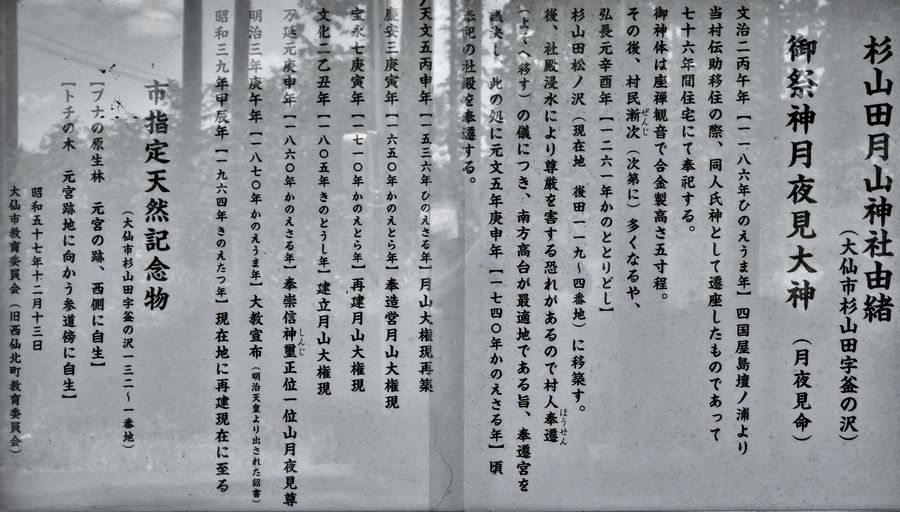 杉山田月山神社由緒
（大仙市杉山田字釜の沢）
御祭神月夜見大神（月夜見命）
文治二丙午年【一一八六年ひのえうま年】四国屋島壇ノ浦より
当村伝助移住の際、同人氏神として遷座したものであって
七十六年間住宅にて奉祀する。
御神体は座禅観音で合金製高さ五寸程。
その後、村民漸次（次第に）多くなるや、
ぜんじ
弘長元辛酉年【一二六一年かのととりどし】
杉山田松ノ沢（現在地　後田一一九～四番地）に移築す。
後、社殿浸水により尊厳を害する恐れがあるので村人奉遷
ほうせん
（よそへ移す）の儀につき、南方高台が最適地である旨、奉遷宮を
議決し、此の処に元文五年庚申年【一七四〇年かのえさる年】頃
奉祀の社殿を奉遷する。
天文五丙申年【一五三六年ひのえさる年】月山大権現再築
慶安三庚寅年【一六五〇年かのえとら年】奉造営月山大権現
宝永七庚寅年【一七一〇年かのえとら年】再建月山大権現
文化二乙丑年【一八〇五年きのとうし年】建立月山大権現
万延元庚申年【一八六〇年かのえさる年】奉崇信神璽正位一位山月夜見尊
しんじ
明治三年庚午年【一八七〇年かのえうま年】大教宣布（明治天皇より出された詔書）
昭和三九年甲辰年【一九六四年きのえたつ年】現在地に再建現在に至る
市指定天然記念物
（大仙市杉山田字釜の沢一三二～一番地）
【ブナの原生林　元宮の跡、西側に自生】
【トチの木　元宮跡地に向かう参道傍に自生】
昭和五十七年十二月十三日
大仙市教育委員会（旧西仙北町教育委員会）